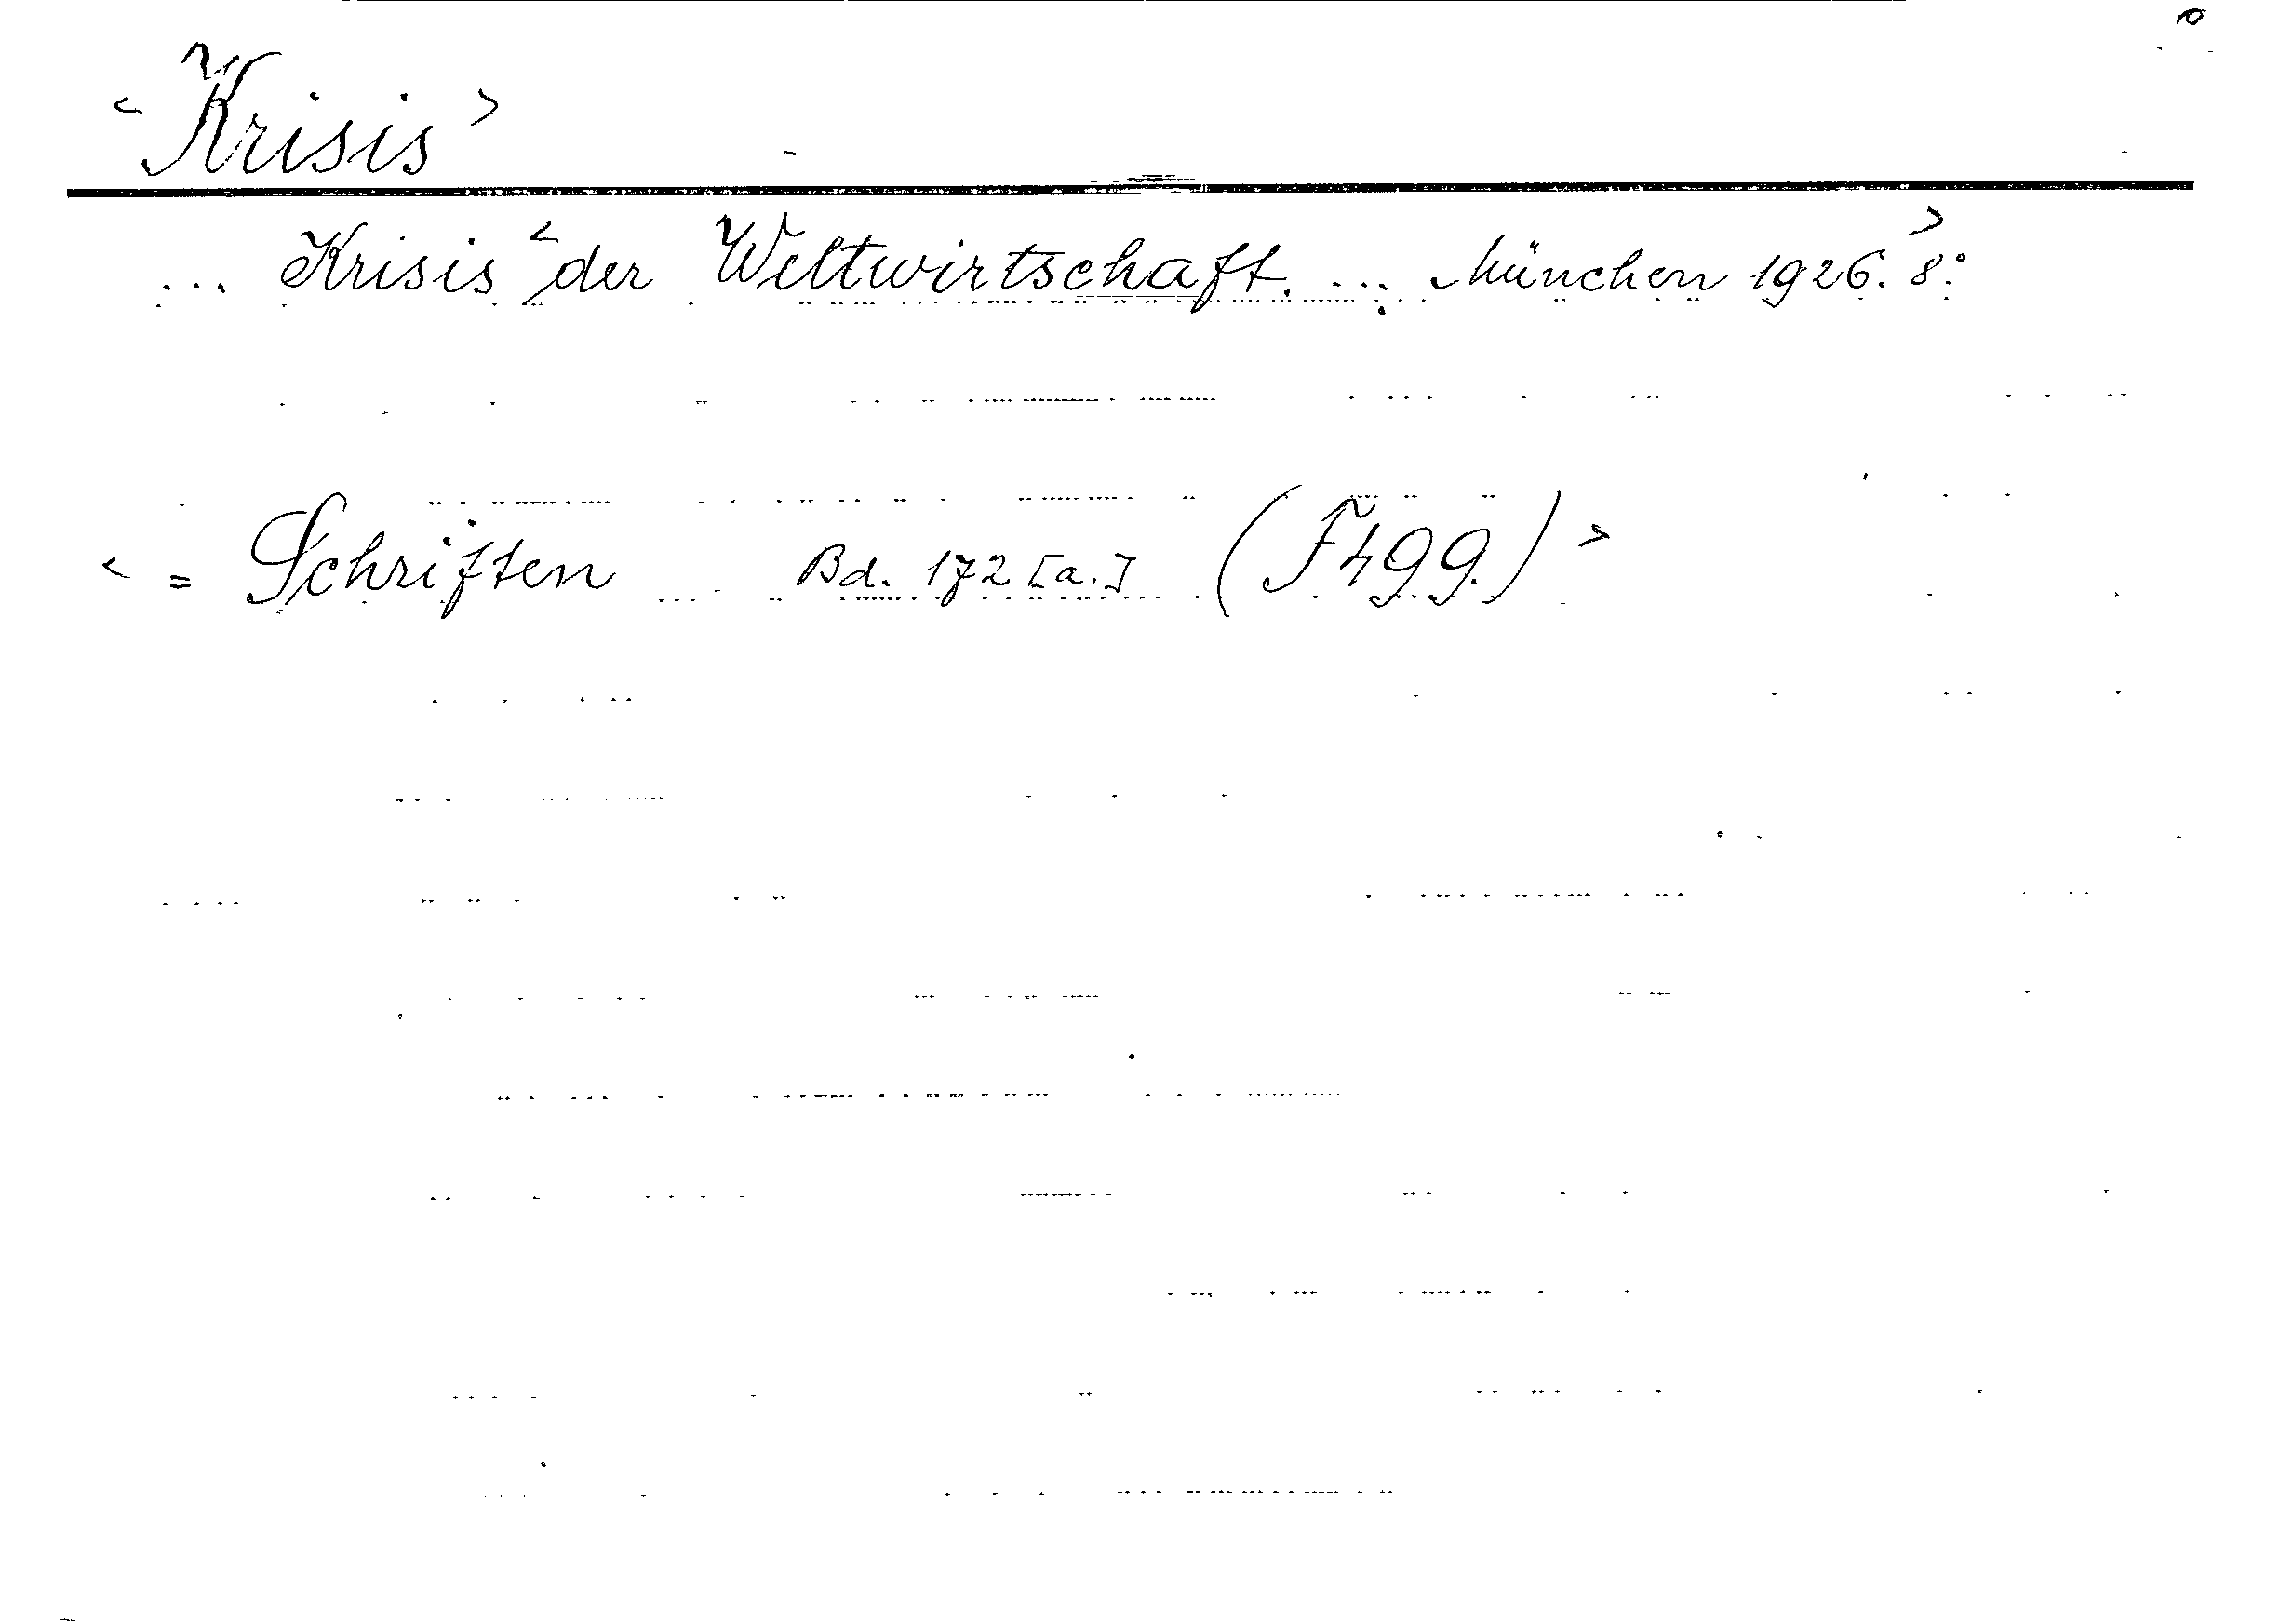 <Krisis>
... Krisis <der Weltwirtschaft. ... München 1926. 8°.>
< = Schriften ... Bd. 172 [a.] (F499.) >